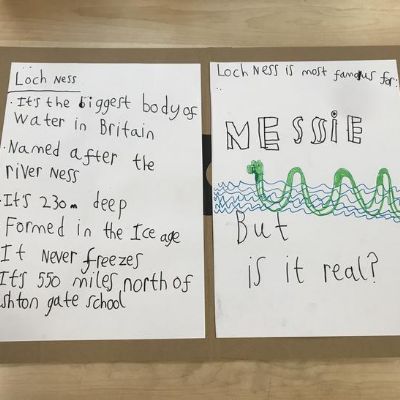 Loch Ness
·It's the biggest body of
water in Britain
·Named after the
river Ness
·It's 230m deep
Formed in the Ice age
It Never freezes
It's 550 miles north of
shton gate school
Loch Ness is most famous for:
NESSIE
But
is it real?